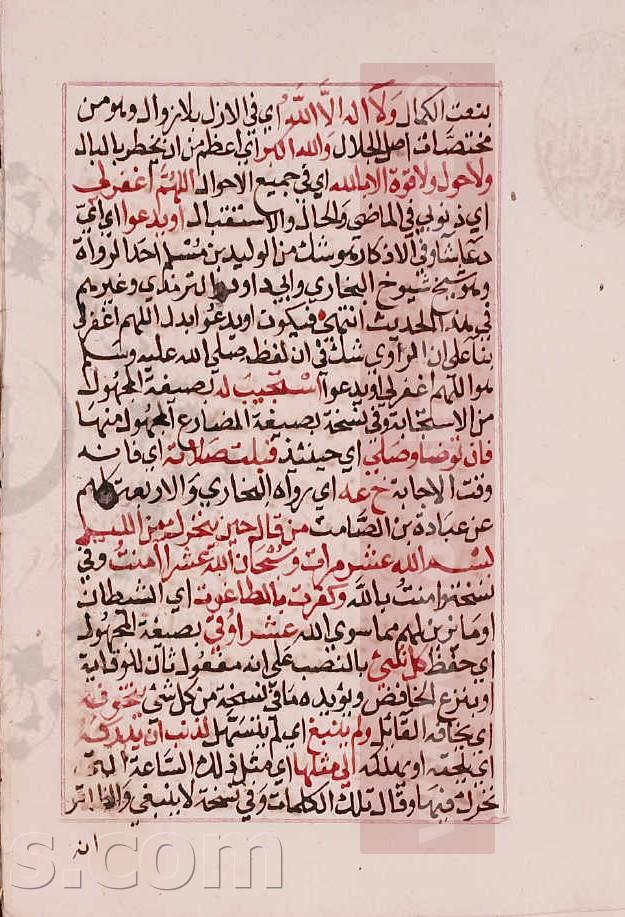 بنعت الكمال ولا اله الا الله اي في الازل بلا زوال وهو من
مختصات اهل الجلال والله اكبر اي اعظم من ان يخطر بالبال
ولا حول ولا قوة الا بالله اي في جميع الاحوال اللهم اغفر لي
اي ذنوبي في الماضي والحال والاستقبال او يدعوا اي اي
دعا شا وفي الاذكار هو شك من الوليد بن مسلم احد الرواة
وهو شيخ شيوخ البخاري وابي داود والترمذي وغيرهم
في هذا الحديث انتهى فيكون او يدعو ابدل اللهم اغفر لي
بنا على ان الراوي شك في ان لفظه صلى الله عليه وسلم
هو اللهم اغفر لي او يدعوا استجيب له بصيغة المجهول
من الاستجابة وفي نسخة بصيغة المضارع المجهول منها
فان توضا وصلى اي حينئذ قبلت صلاته اي فانه
وقت الاجابة خ عه اي رواه البخاري والاربعة كلهم
عن عبادة بن الصامت من قال حين يتحرك من الليل
بسم الله عشر مرات وسبحان الله عشرا امنت وفي
نسخة وامنت بالله وكفرت بالطاغوت اي الشيطان
او ما يزين لهم مما سوى الله عشرا وقي بصيغة المجهول
اي حفظ كل شيئ بالنصب على انه مفعول ثان للوقاية
او بنزع الخافض ويؤيده ما في نسخة من كل شئ يتخوفه
اي يخافه القائل ولم ينبغ اي لم يتسهل لذنب ان يدركه
اي يلحقه او يهلكه الى مثلها اي مثل ذلك الساعة التي
تحرك فيها وقال تلك الكلمات وفي نسخة لا ينبغي
ان
s.com